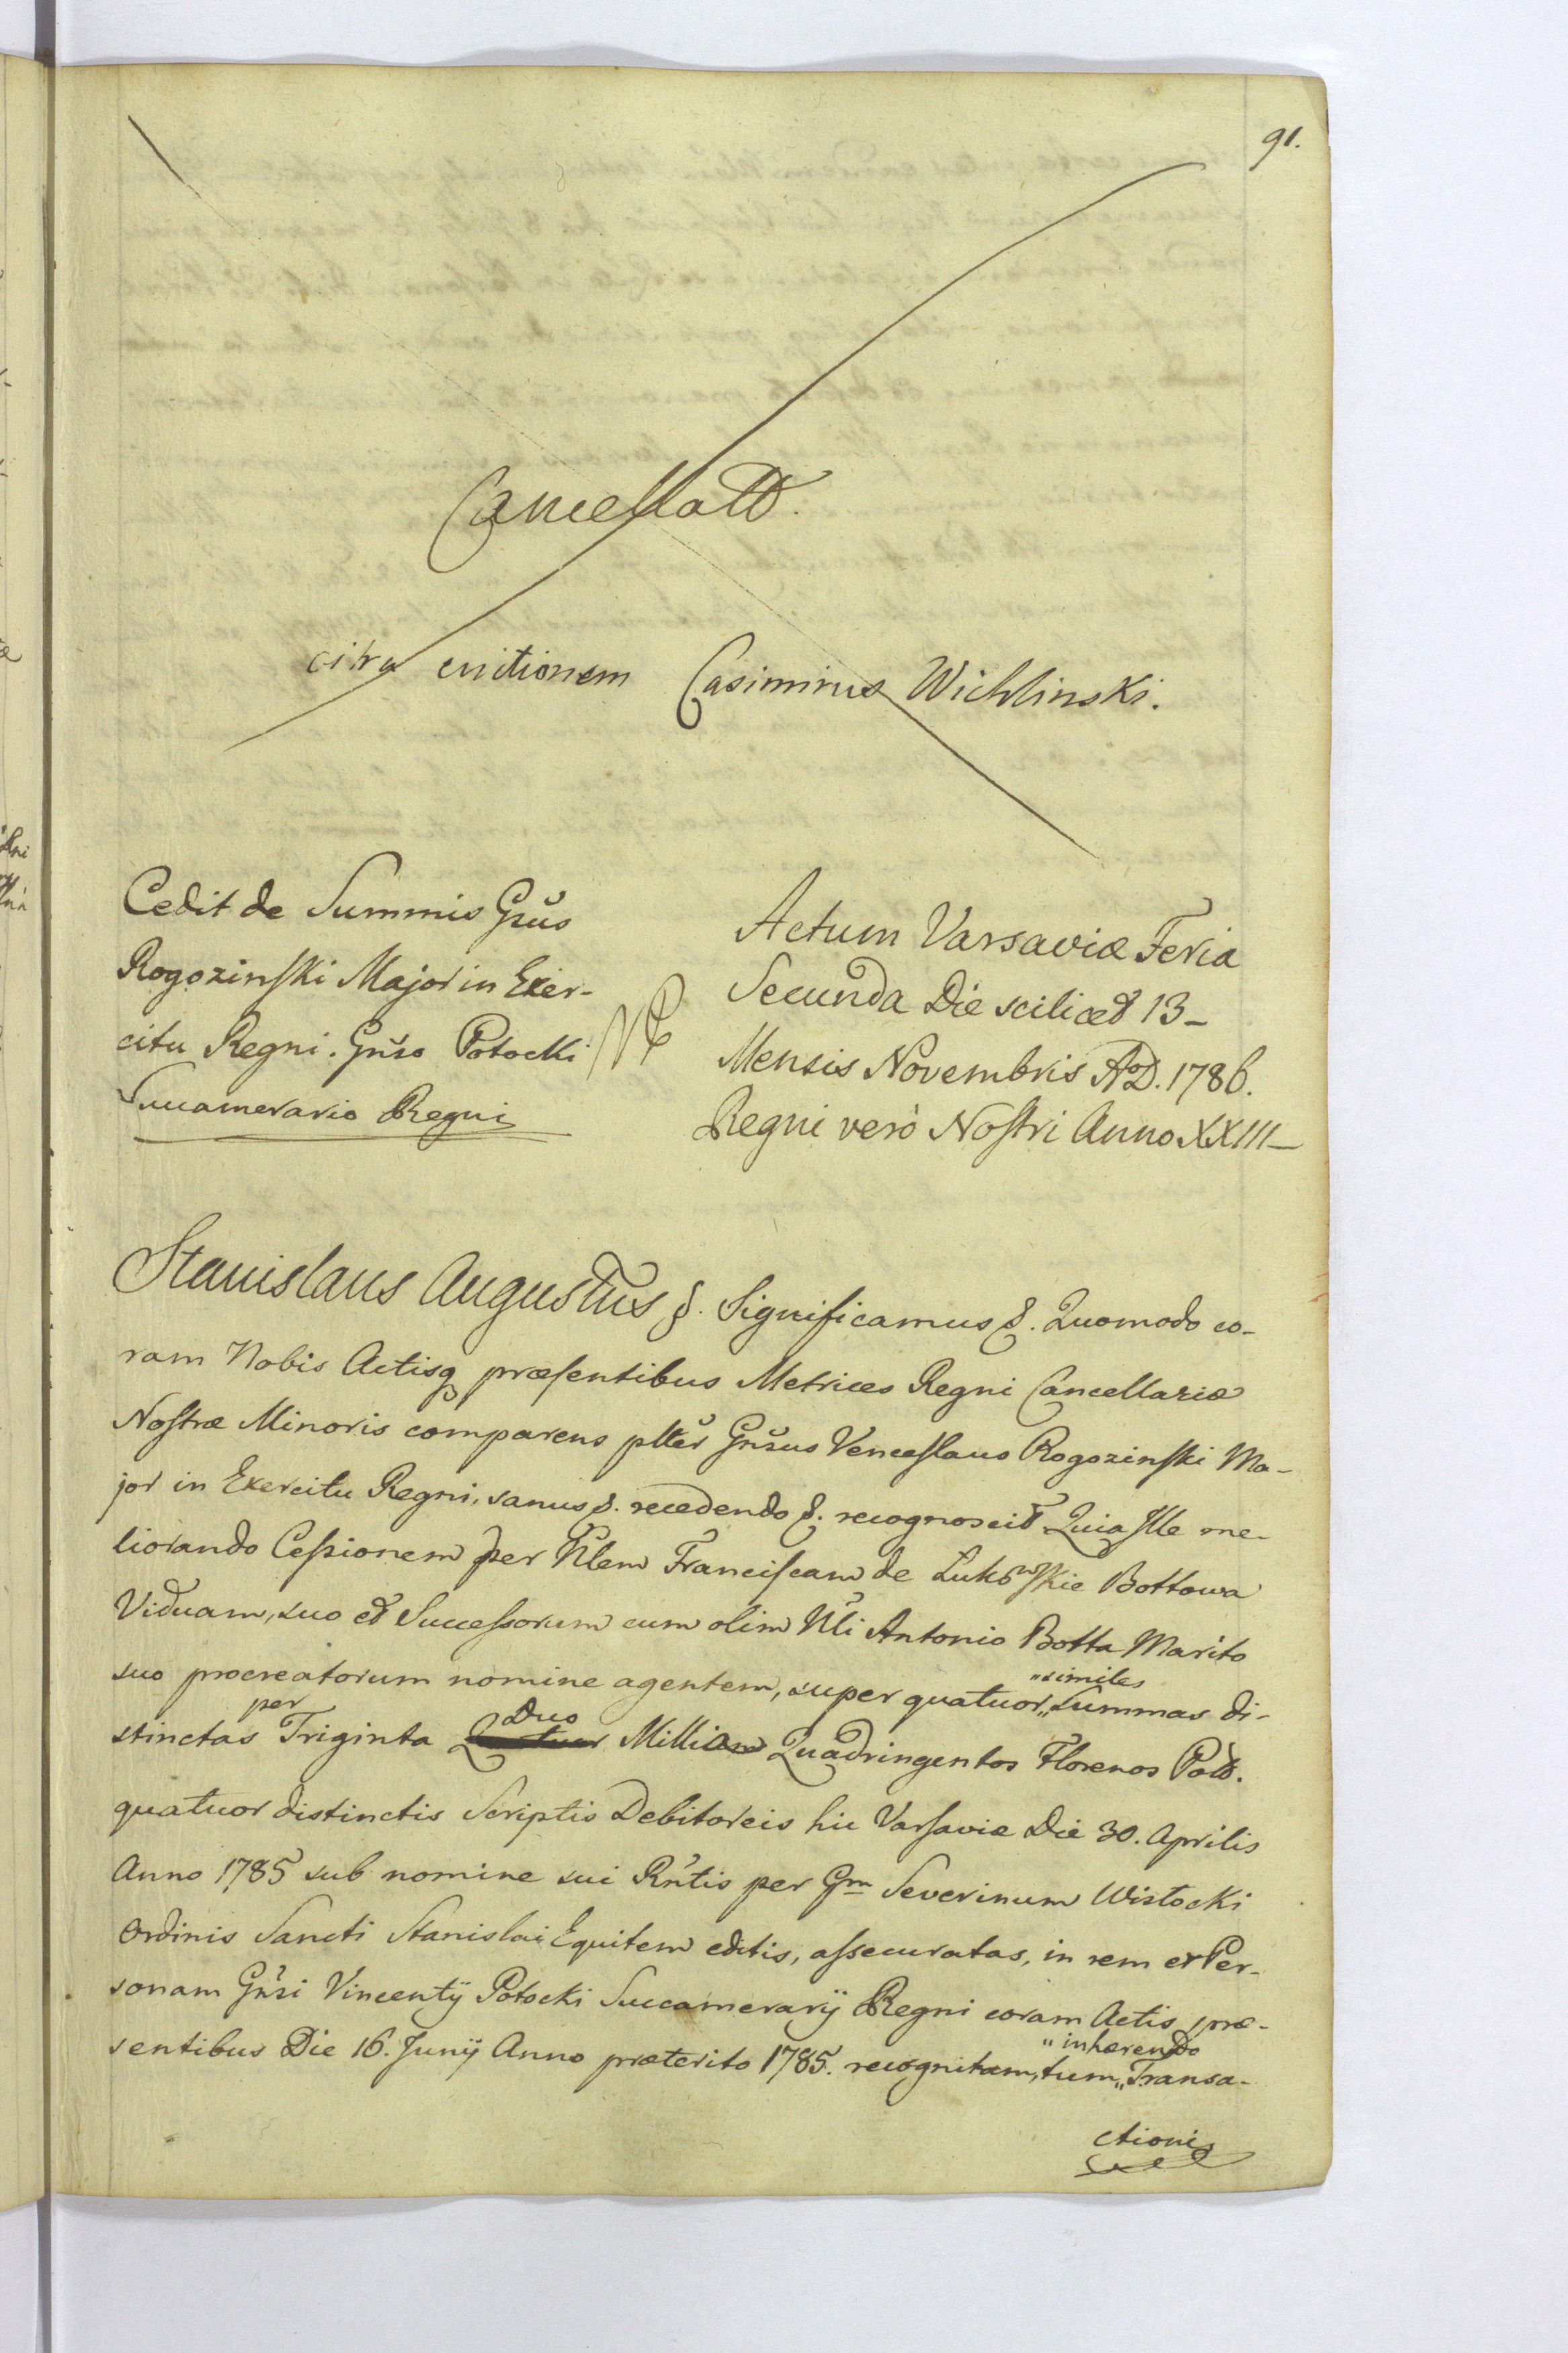 91.
Cancellatt.
citra evictionem Casimirus Wichlinski.
Cedit de Summis Gñsus
Rogozinski Major in Exer-
citu Regni. Gñso Potocki
Succamerario Regni
Actum Varsaviæ Feria
Secunda Die scilicet 13-
Mensis Novembris AD. 1786.
Regni verò Nostri Anno XXIII-
Stanislaus Augustus &. Significamus &. Quomodo co-
ram Nobis Actisq præsentibus Metrices Regni Cancellariæ
Nostræ Minoris comparens plter Gñsus Venceslaus Rogozinski Ma-
jor in Exercitu Regni, sanus &. recedendo &. recognoscit Quia Ille me-
liorando Cessionem per Nlem Franciscam de Lukowskie Bottowa
Viduam, suo et Successorum cum olim Nli Antonio Botta Marito
suo procreatorum nomine agentem, super quatuor „similes „Summas di-
stinctas per Triginta Quatuor Duo Milliam Quadringentos Florenos Pold.
quatuor distinctis Scriptis Debitoreis hic Varsaviæ Die 30. Aprilis
Anno 1785 sub nomine sui Rñtis per Gm Severinum Wistocki
Ordinis Sancti Stanislai Equitem editis, assecuratas, in rem et Per-
sonam Gñsi Vincentÿ Potocki Succamerarÿ Regni coram Actis præ-
sentibus Die 16. Junÿ Anno præterito 1785. recognitam, tum „inhærendo „Transa-
ctioni